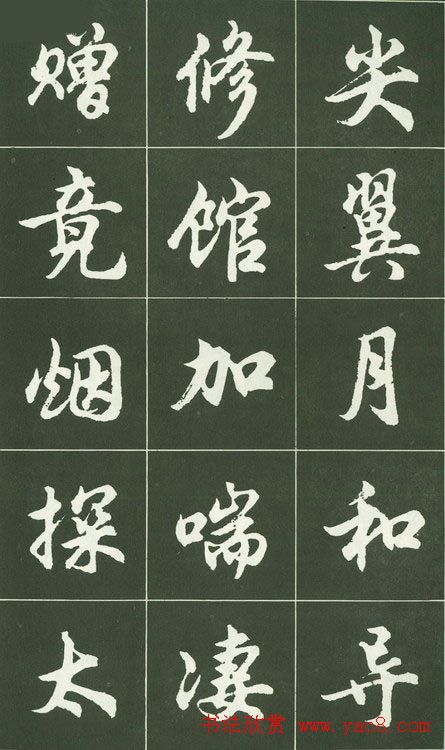 尖翼月和异
修馆加喘凄
赠竟烟探太
书法欣赏 www.yac8.com